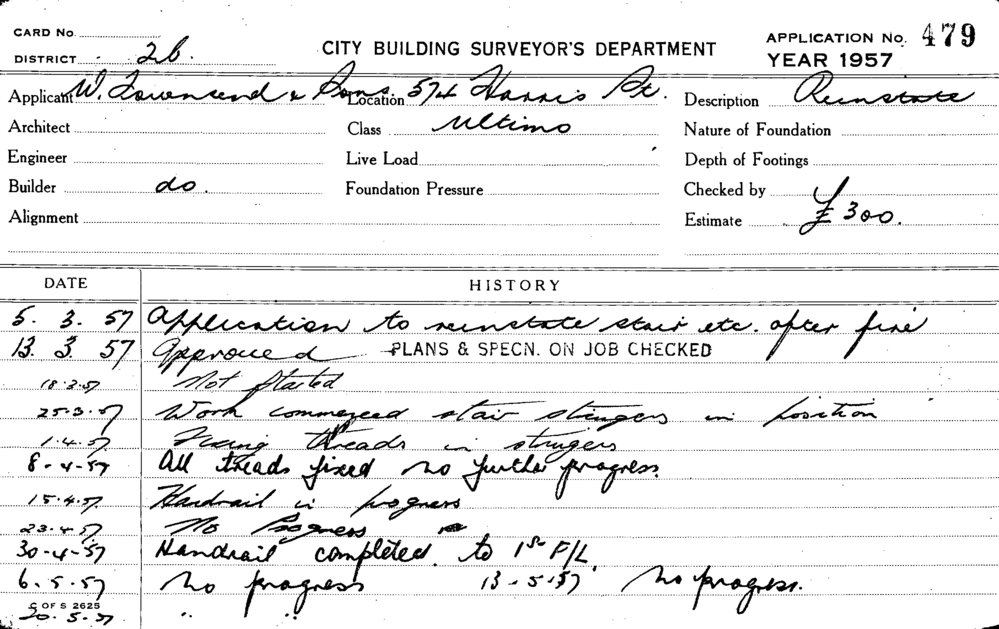 CARD No.
DISTRICT 2b.
CITY BUILDING SURVEYOR'S DEPARTMENT
APPLICATION No. 479
YEAR 1957
Applicant W. Townsend & Sons Location 574 Harris St. Description Reinstate
Architect Class Ultimo Nature of Foundation
Engineer Live Load Depth of Footings
Builder do. Foundation Pressure Checked by
Alignment Estimate £300.
DATE HISTORY
5. 3. 57 Application to reinstate stair etc. after fire
13. 3. 57 Approved PLANS & SPECN. ON JOB CHECKED
18.3.57 Not Started
25.3.57 Work commenced stair stringers in position
1.4.57 Fixing threads in stringers
8-4-57 All treads fixed no further progress.
15.4.57 Handrail in progress
23.4.57 No Progress
30-4-57 Handrail completed to 1st F/L.
6.5.57 No progress 13-5-57 No progress.
C OF S 2625
20.5.57 " "